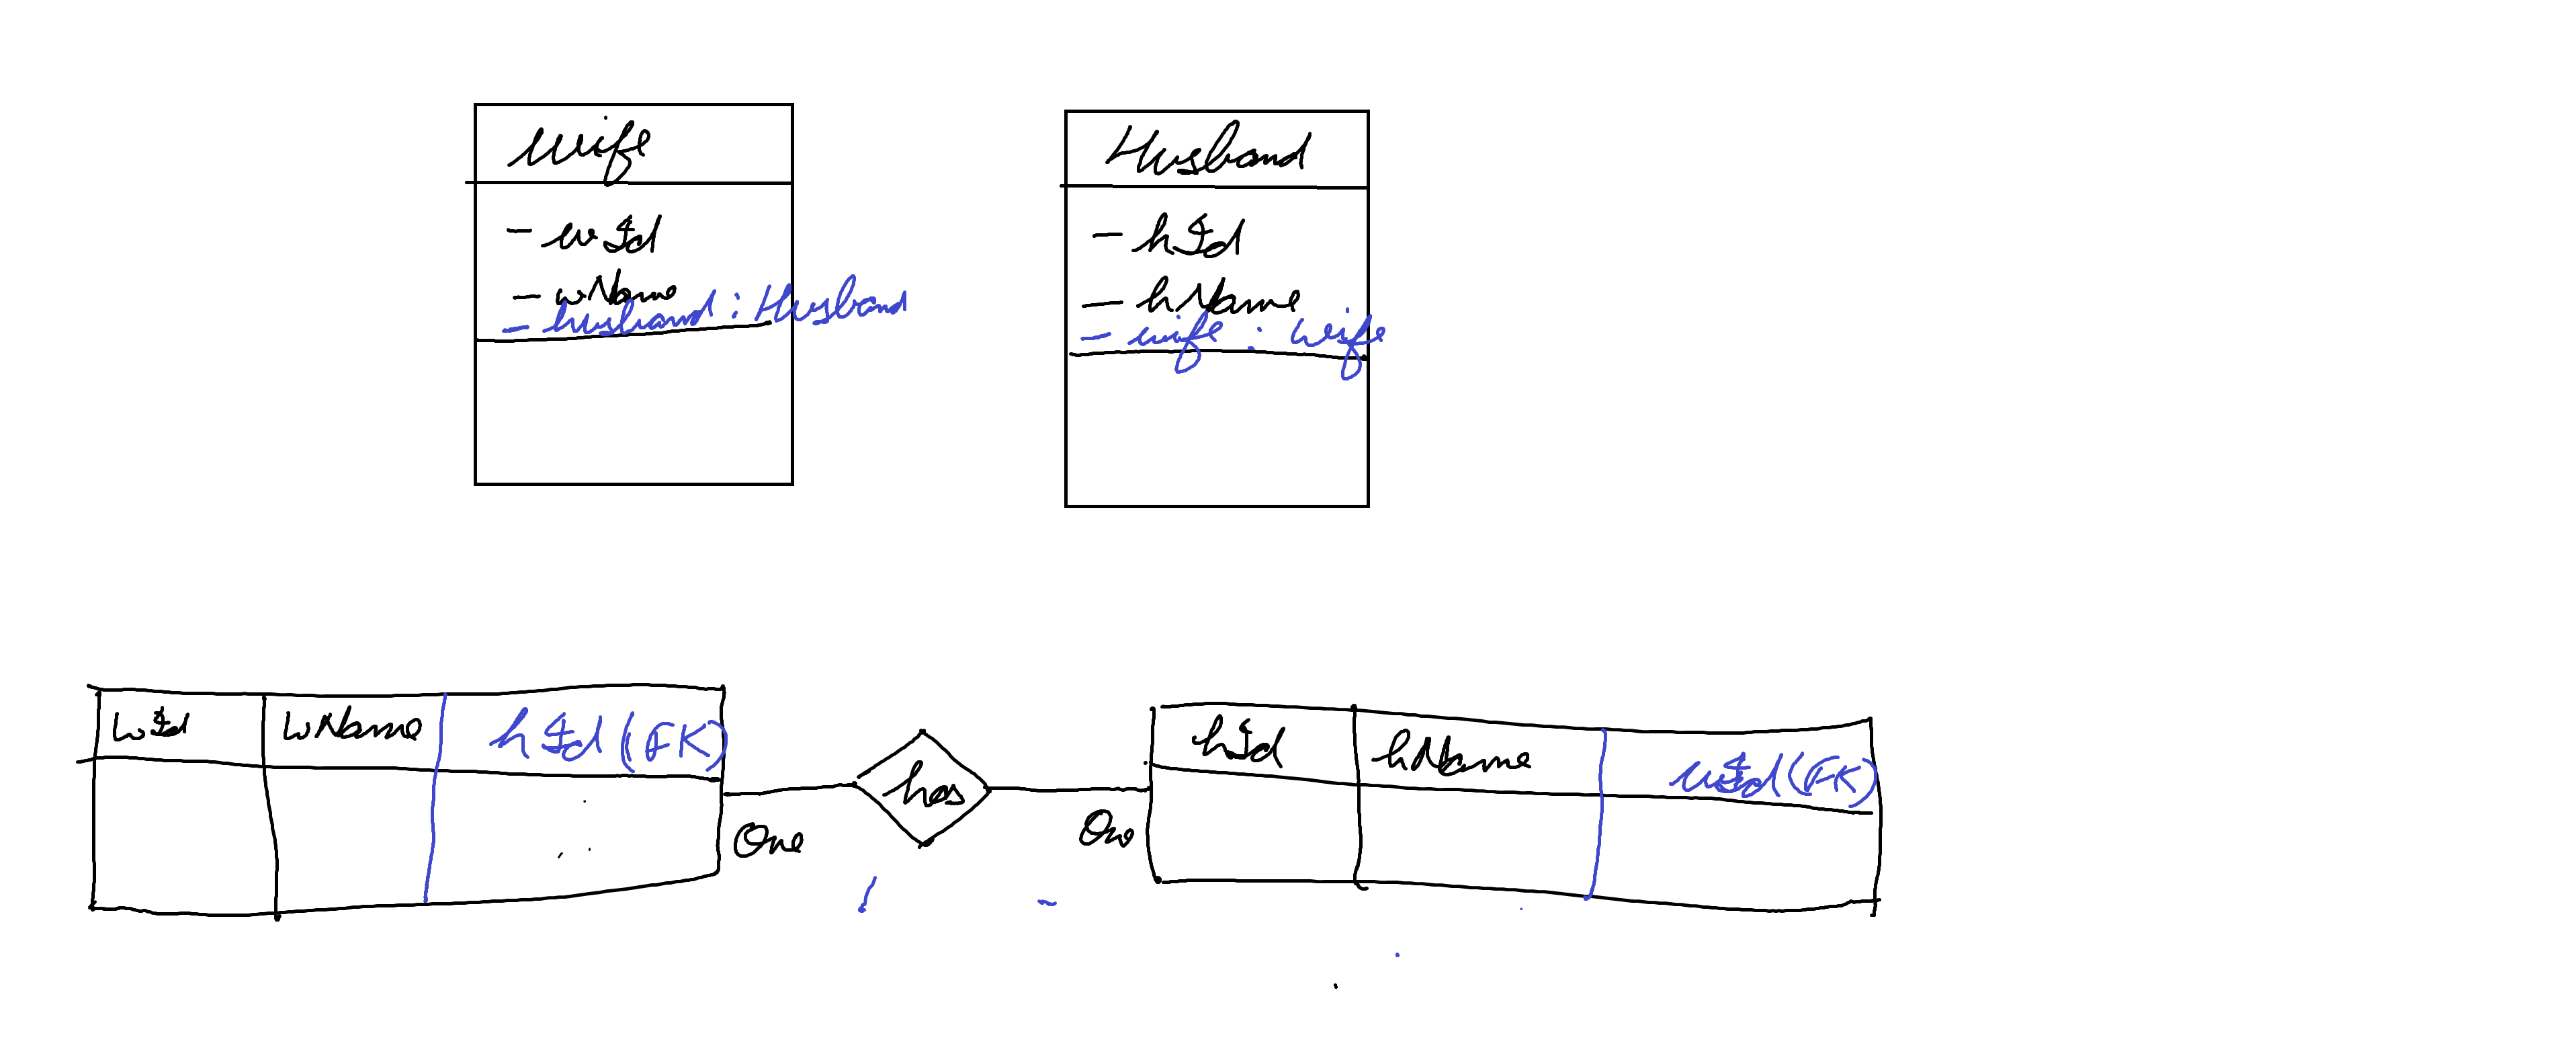 Wife
- wId
- wName
- husband : Husband
Husband
- hId
- hName
- wife : Wife
wId wName hId (FK)
One
has
One
hId hName wId (FK)